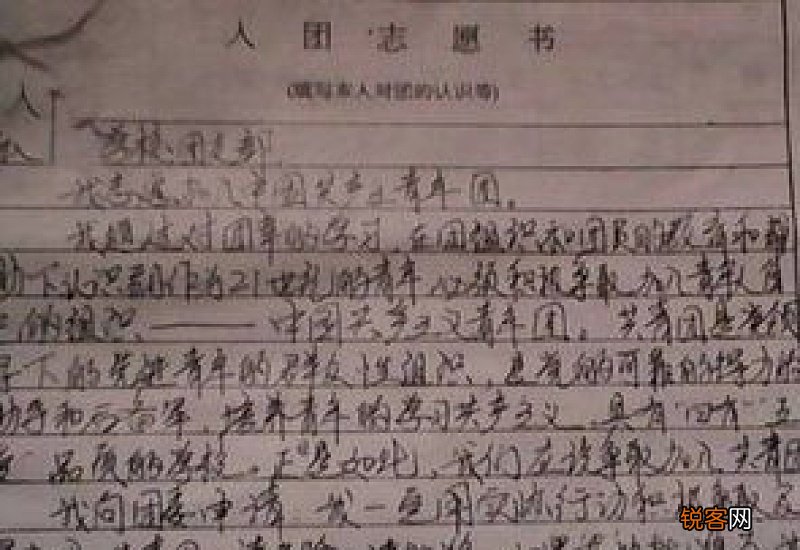 入团志愿书
(填写本人对团的认识等)
人
学校团支部
我志愿加入中国共产主义青年团。
我通过对团章的学习,在团组织和团员的教育和帮
助下认识到作为21世纪的青年,必须积极争取加入青年人自
己的组织——中国共产主义青年团。共青团是党领
导下的先进青年的群众性组织,是党的可靠的得力的
助手和后备军,培养青年的学习共产主义、具有"四有"五
品质的学校。正是如此,我们应该争取加入共青团
我向团委申请 我一定用实际行动和积极争取
锐客网